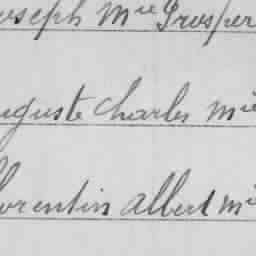 oseph Mie Prosper
uguste Charles Mie
lorentin Albert Mie